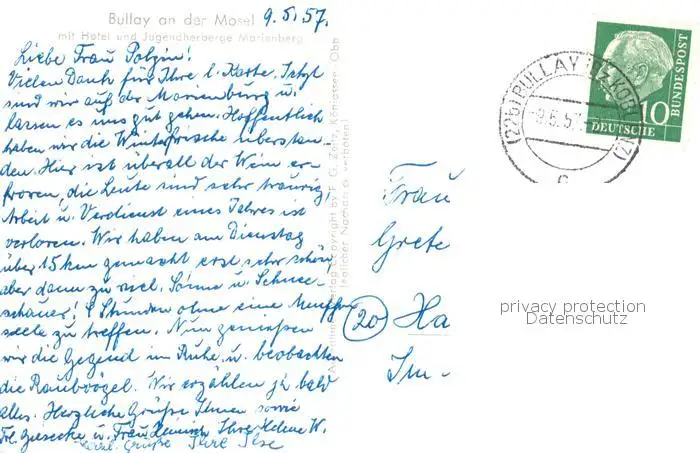 Bullay an der Mosel 9.5.57.
mit Hotel und Jugendherberge Marienberg
Liebe Frau Polzin!
Vielen Dank für Ihre l. Karte. Jetzt
sind wir auf der Marienburg u.
lassen es uns gut gehen. Hoffentlich
haben wir die Winterfrische überstan-
den. Hier ist überall der Wein er-
froren, die Leute sind sehr traurig,
Arbeit u. Verdienst eines Jahres ist
verloren. Wir haben am Dienstag
über 15 km gemacht erst sehr schön
aber dann zu viel. Sonne u. Schnee-
schauer! Stunden ohne eine Menschen
seele zu treffen. Nun genießen
wir die Gegend in Ruhe u. beobachten
die Raubvögel. Wir erzählen ja bald
alles. Herzliche Grüße Ihnen sowie
Frl. Giesecke u. Frau Ihre Helene W.
Grüße Ihre Ilse
Frau
Grete
(20) Ha
Im-
BULLAY
9.5.57
DEUTSCHE
BUNDESPOST
10
privacy protection
Datenschutz